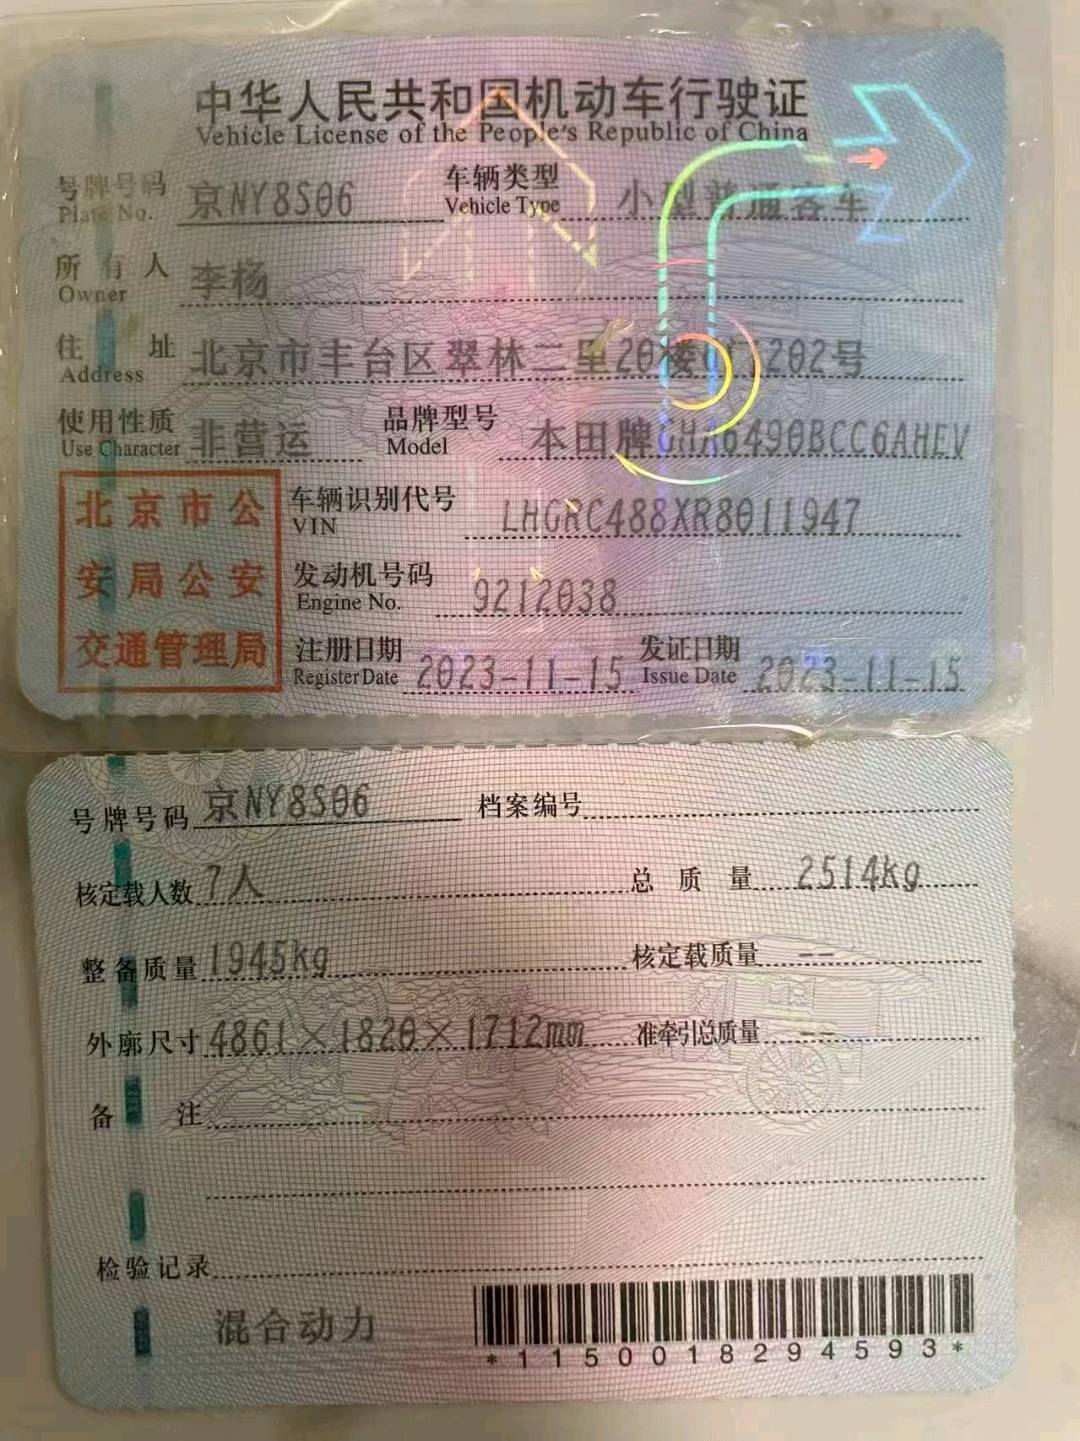 中华人民共和国机动车行驶证
Vehicle License of the People's Republic of China
号牌号码 京NY8S06 车辆类型 小型普通客车
Plate No. Vehicle Type
所有人 李杨
Owner
住址 北京市丰台区翠林二里20楼 202号
Address
使用性质 非营运 品牌型号 本田牌GHA6490BCC6AHEV
Use Character Model
北京市公
安局公安
交通管理局
车辆识别代号 LHGRC488XR8011947
VIN
发动机号码 9212038
Engine No.
注册日期 2023-11-15 发证日期 2023-11-15
Register Date Issue Date
号牌号码 京NY8S06 档案编号
核定载人数 7人 总质量 2514kg
整备质量 1945kg 核定载质量 --
外廓尺寸 4861×1820×1712mm 准牵引总质量 --
备注
检验记录
混合动力
*1150018294593*